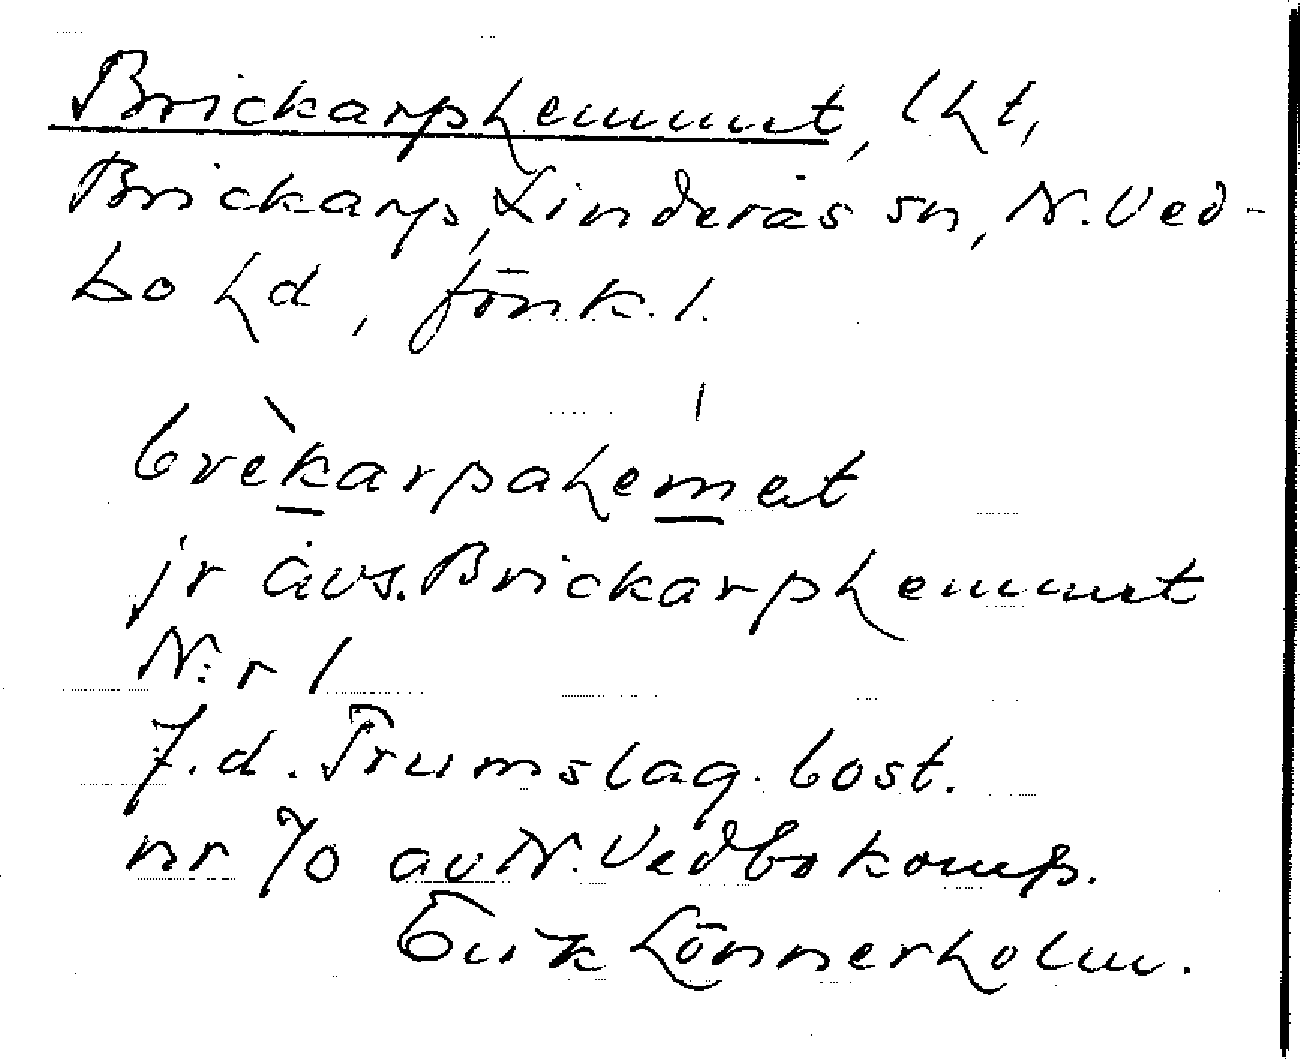 Brickarphemmet, lht,
Brickarp, Linderås sn, N. Ved-
bo hd, Jönk. l.
brèkarpahemat
jr avs. Brickarphemmet
N:r 1
F.d. Trumslag. bost.
nr 70 av N. Vedbo komp.
Erik Lönnerholm.